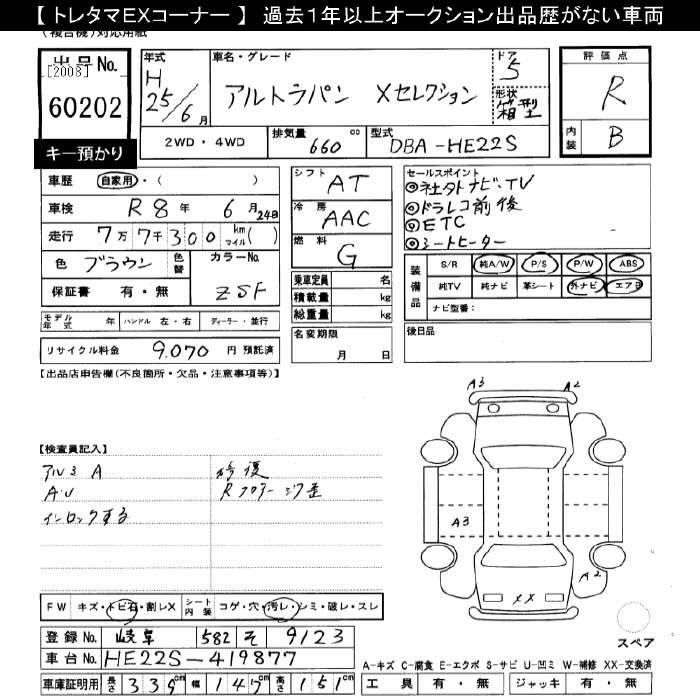 【 トレタマEXコーナー 】 過去1年以上オークション出品歴がない車両
(複合機)対応用紙
出品No. [2008]
60202
キー預かり
年式 H 25/6月
車名・グレード アルトラパン Xセレクション
ドア 5
形状 箱型
2WD・4WD
排気量 660 cc
型式 DBA-HE22S
評価点 R
内装 B
車歴 自家用・( )
車検 R8年 6月24日
走行 7万7千300 km マイル( )
色 ブラウン 色替 カラーNo. ZSF
保証書 有・無
シフト AT
冷房 AAC
燃料 G
乗車定員 名
積載量 kg
総重量 kg
セールスポイント
◎社外ナビ、TV
◎ドラレコ前後
◎ETC
◎シートヒーター
装備品
S/R 純A/W P/S P/W ABS
純TV 純ナビ 革シート 外ナビ エアB
ナビ型番:
モデル年式 年 ハンドル 左・右 ディーラー・並行
リサイクル料金 9.070 円 預託済
名変期限 月 日
後日品
【出品店申告欄(不良箇所・欠品・注意事項等)】
A3 A2
【検査員記入】
アルミ A 修復
A'U Rフロアー
インロックする
A3
A2
XX
FW キズ・トビ石・割レX シート内装 コゲ・穴・汚レ・シミ・破レ・スレ
スペア
登録No. 岐阜 582 そ 9123
車台No. HE22S-419877
A-キズ C-腐食 E-エクボ S-サビ U-凹ミ W-補修 XX-交換済
車庫証明用 長さ 339cm 幅 147cm 高さ 151cm
工具 有・無 ジャッキ 有・無